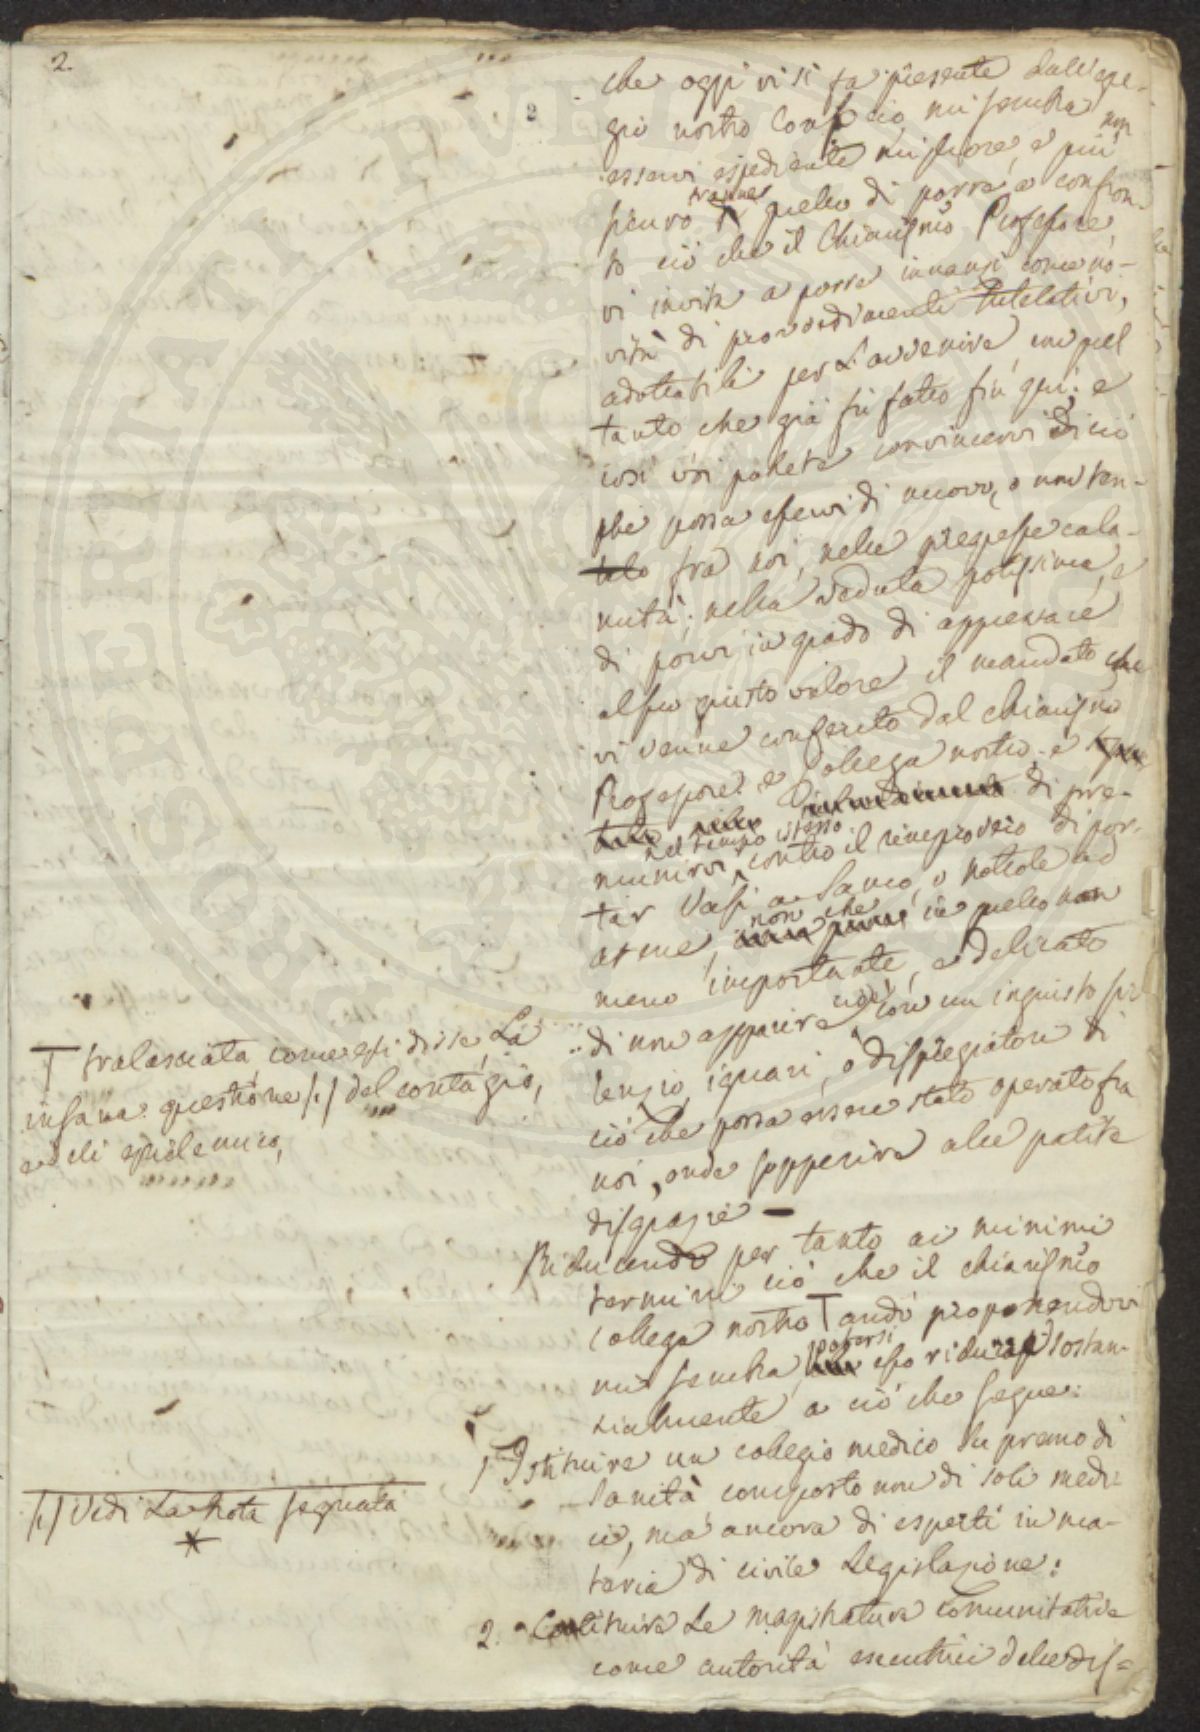 2.
che oggi vi si fa presente dall'egre-
gio nostro Consocio, mi sembra non
esservi espediente migliore, e più
sicuro tranne quello di porre a confron-
to ciò che il Chiariss̃mo Professore
vi invita a porre innanzi come no-
vità di provvedimenti tutelativi,
adottabili per l'avvenire, con quel
tanto che già fu fatto fin qui; e
così voi potrete convincervi di ciò
che possa esservi di nuovo, o non ten-
tato fra noi, nelle pregresse cala-
mità; nella veduta potissima, e
di porvi in grado di apprezzare
al suo giusto valore il mandato che
vi venne conferito dal chiariss̃mo
Professore e Collega nostro; e
di pre-
nel tempo istesso
munirvi contro il rimprovero di por-
tar Vasi a Samo, o nottole ad
Atene, non che in quello non
meno importante, e delicato
di non apparire cioè con un ingiusto si-
lenzio, ignari, o dispregiatori di
ciò che possa essere stato operato fra
noi, onde sopperire alle patite
disgrazie —
Riducendo per tanto ai minimi
termini ciò che il chiariss̃mo
collega nostro T andò proponendovi
mi sembra potersi esso ridurre sostan-
zialmente a ciò che segue:
1 Istituire un collegio medico supremo di
sanità composto non di soli medi-
ci, ma ancora di esperti in ma-
teria di civile Legislazione:
2. Costituire Le magistrature Comunitative
come autorità esecutrici delle dis=
T tralasciata, come egli disse, La
insana questione (1) del contagio,
e di epidemico,
(1) Vedi La Nota segnata
*